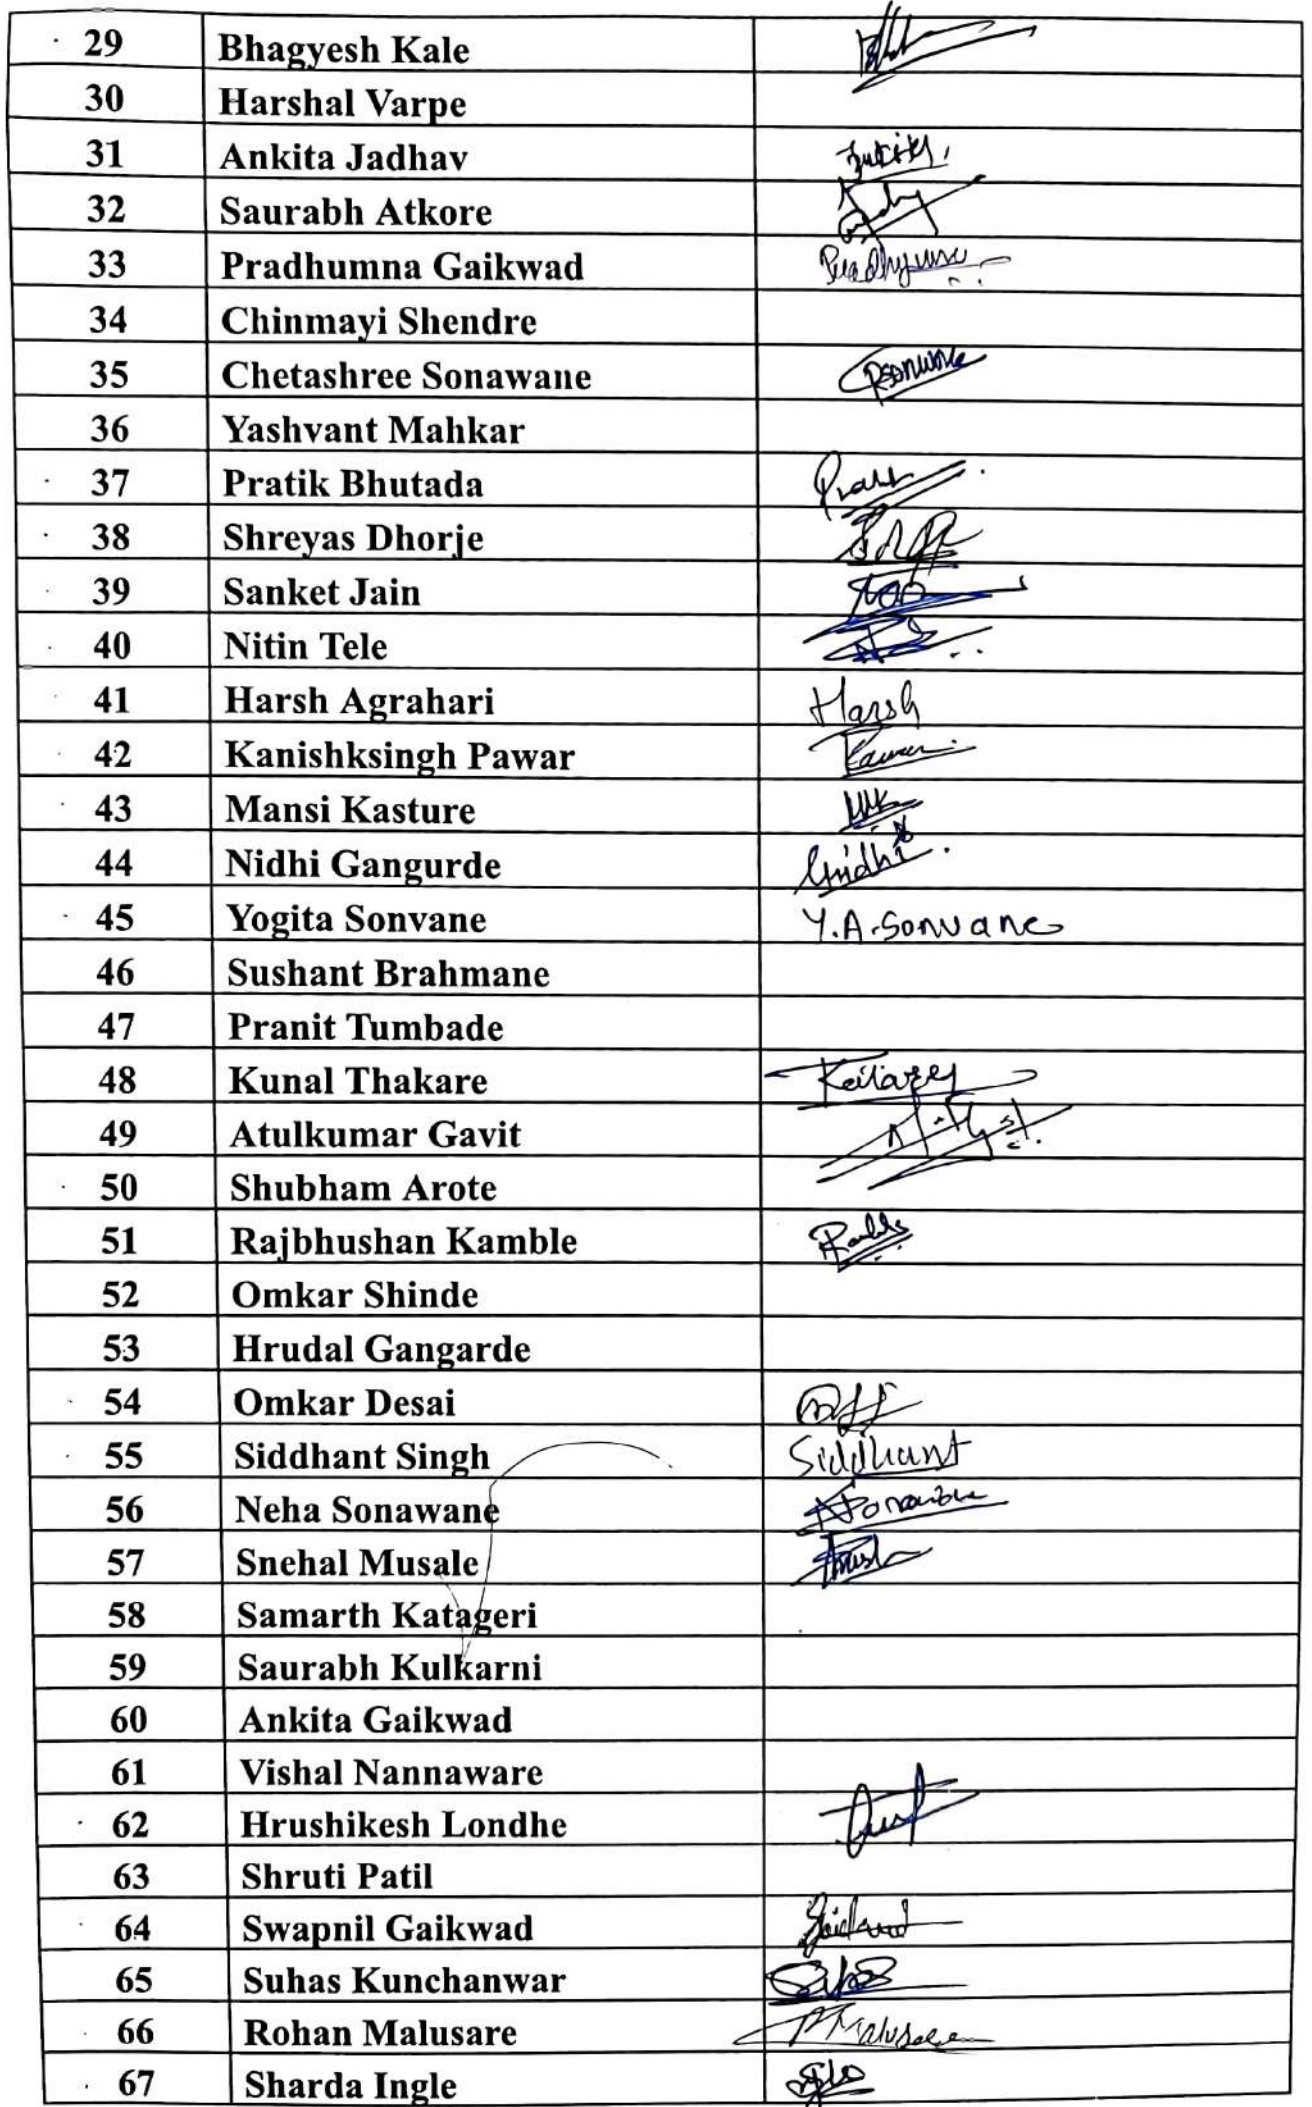 29 Bhagyesh Kale
30 Harshal Varpe
31 Ankita Jadhav
32 Saurabh Atkore
33 Pradhumna Gaikwad
34 Chinmayi Shendre
35 Chetashree Sonawane
36 Yashvant Mahkar
37 Pratik Bhutada
38 Shreyas Dhorje
39 Sanket Jain
40 Nitin Tele
41 Harsh Agrahari Harsh
42 Kanishksingh Pawar
43 Mansi Kasture
44 Nidhi Gangurde
45 Yogita Sonvane Y.A.Sonvane
46 Sushant Brahmane
47 Pranit Tumbade
48 Kunal Thakare
49 Atulkumar Gavit
50 Shubham Arote
51 Rajbhushan Kamble
52 Omkar Shinde
53 Hrudal Gangarde
54 Omkar Desai
55 Siddhant Singh Siddhant
56 Neha Sonawane
57 Snehal Musale
58 Samarth Katageri
59 Saurabh Kulkarni
60 Ankita Gaikwad
61 Vishal Nannaware
62 Hrushikesh Londhe
63 Shruti Patil
64 Swapnil Gaikwad
65 Suhas Kunchanwar
66 Rohan Malusare
67 Sharda Ingle